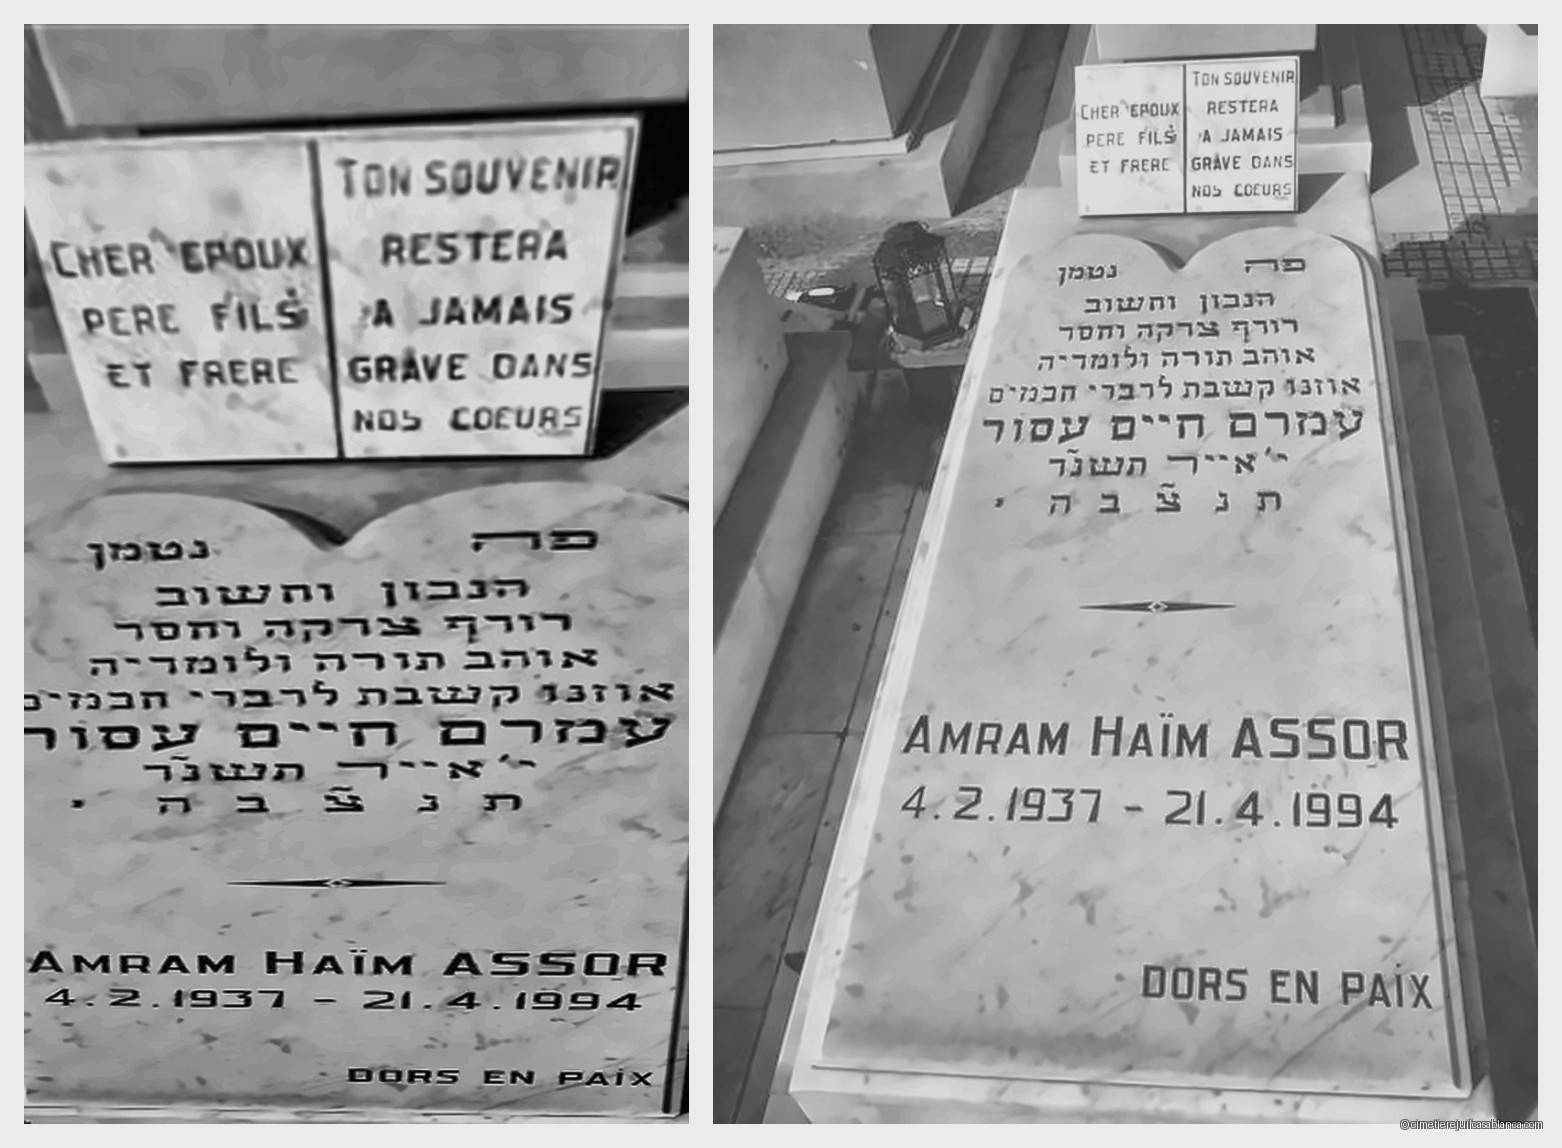 CHER EPOUX
PERE FILS
ET FRERE
TON SOUVENIR
RESTERA
A JAMAIS
GRAVE DANS
NOS COEURS
פה נטמן
הנבון וחשוב
רודף צדקה וחסד
אוהב תורה ולומדיה
אוזנו קשבת לדברי חכמים
עמרם חיים עסור
י' אייר תשנ"ד
ת נ צ ב ה י
AMRAM HAÏM ASSOR
4.2.1937 - 21.4.1994
DORS EN PAIX
CHER EPOUX
PERE FILS
ET FRERE
TON SOUVENIR
RESTERA
A JAMAIS
GRAVE DANS
NOS COEURS
פה נטמן
הנבון וחשוב
רודף צדקה וחסד
אוהב תורה ולומדיה
אוזנו קשבת לדברי חכמים
עמרם חיים עסור
י' אייר תשנ"ד
ת נ צ ב ה י
AMRAM HAÏM ASSOR
4.2.1937 - 21.4.1994
DORS EN PAIX
©cimetierejuifcasablanca.com